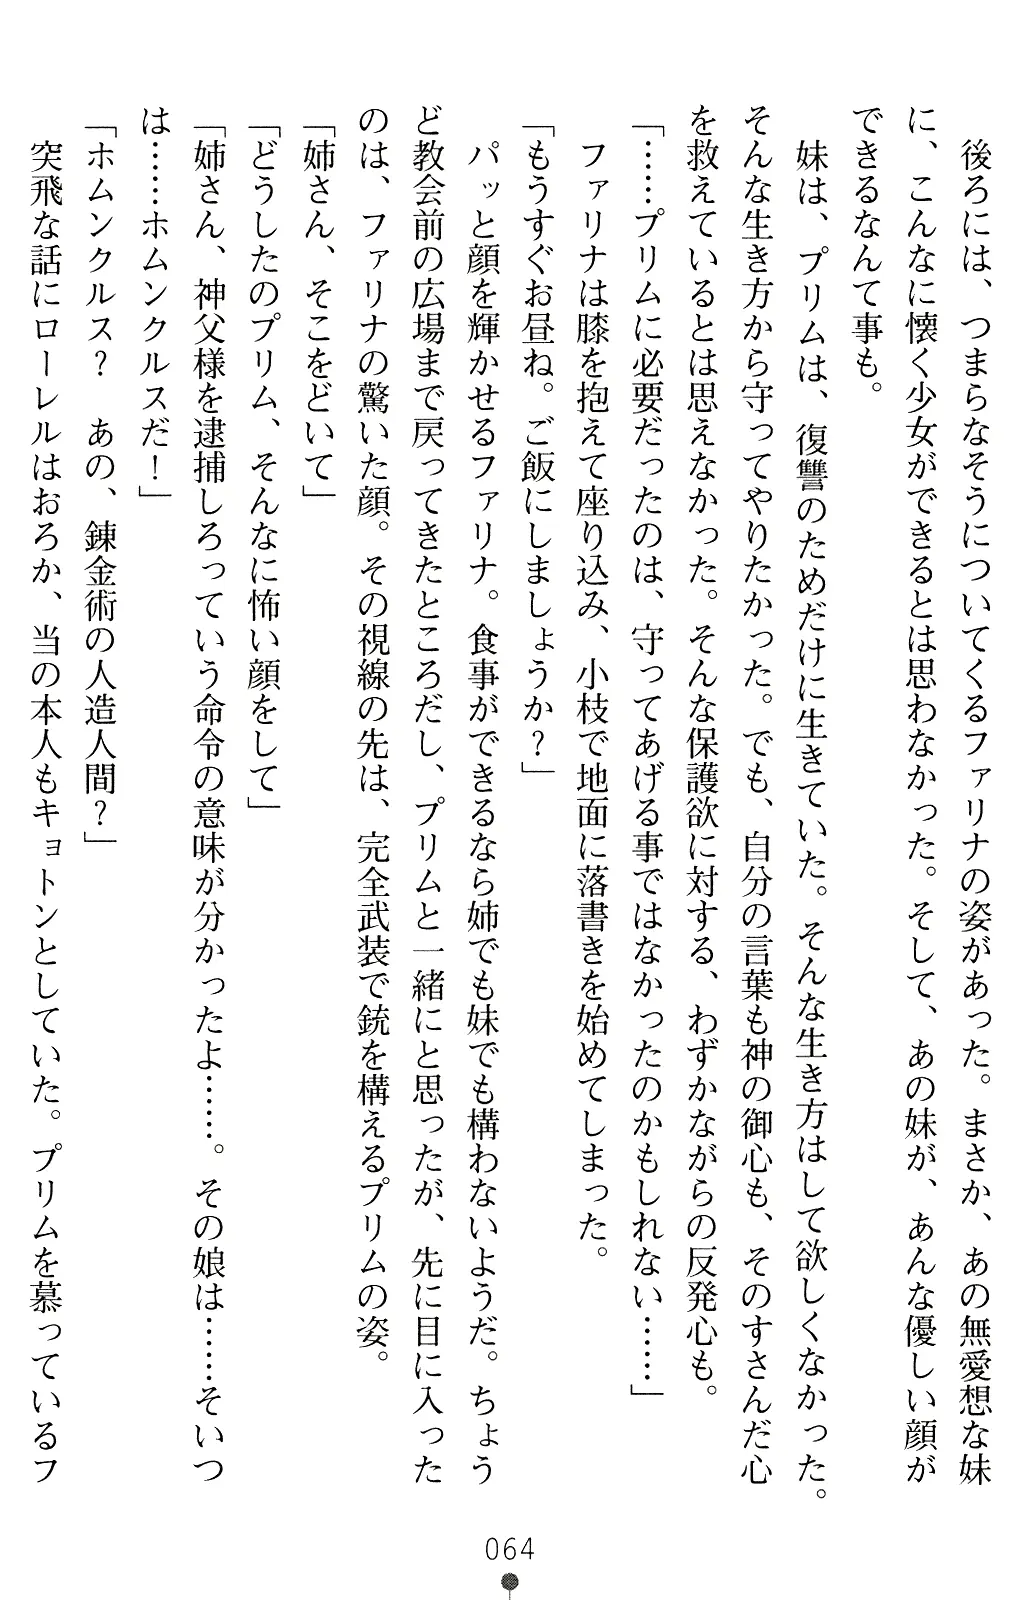 後ろには、つまらなそうについてくるファリナの姿があった。まさか、あの無愛想な妹
に、こんなに懐く少女ができるとは思わなかった。そして、あの妹が、あんな優しい顔が
できるなんて事も。
妹は、プリムは、復讐のためだけに生きていた。そんな生き方はして欲しくなかった。
そんな生き方から守ってやりたかった。でも、自分の言葉も神の御心も、そのすさんだ心
を救えているとは思えなかった。そんな保護欲に対する、わずかながらの反発心も。
「……プリムに必要だったのは、守ってあげる事ではなかったのかもしれない……」
ファリナは膝を抱えて座り込み、小枝で地面に落書きを始めてしまった。
「もうすぐお昼ね。ご飯にしましょうか？」
パッと顔を輝かせるファリナ。食事ができるなら姉でも妹でも構わないようだ。ちょう
ど教会前の広場まで戻ってきたところだし、プリムと一緒にと思ったが、先に目に入った
のは、ファリナの驚いた顔。その視線の先は、完全武装で銃を構えるプリムの姿。
「姉さん、そこをどいて」
「どうしたのプリム、そんなに怖い顔をして」
「姉さん、神父様を逮捕しろっていう命令の意味が分かったよ……。その娘は……そいつ
は……ホムンクルスだ！」
「ホムンクルス？　あの、錬金術の人造人間？」
突飛な話にローレルはおろか、当の本人もキョトンとしていた。プリムを慕っているフ
064